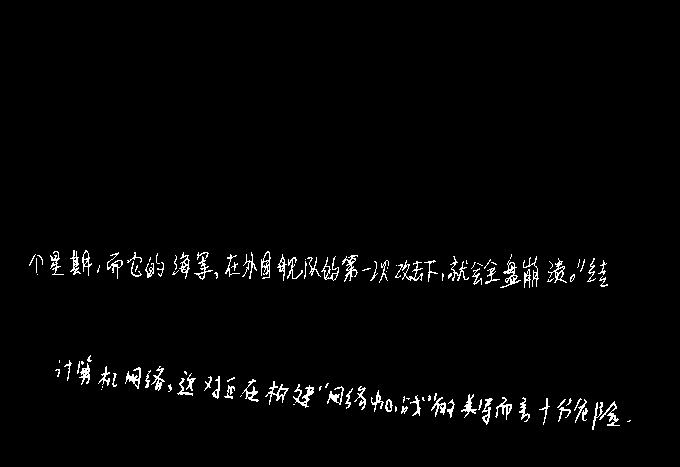 个星期,而它的海军,在外国舰队的第一次攻击下,就会全盘崩溃。"结
计算机网络,这对正在构建"网络中心战"的美军而言十分危险.